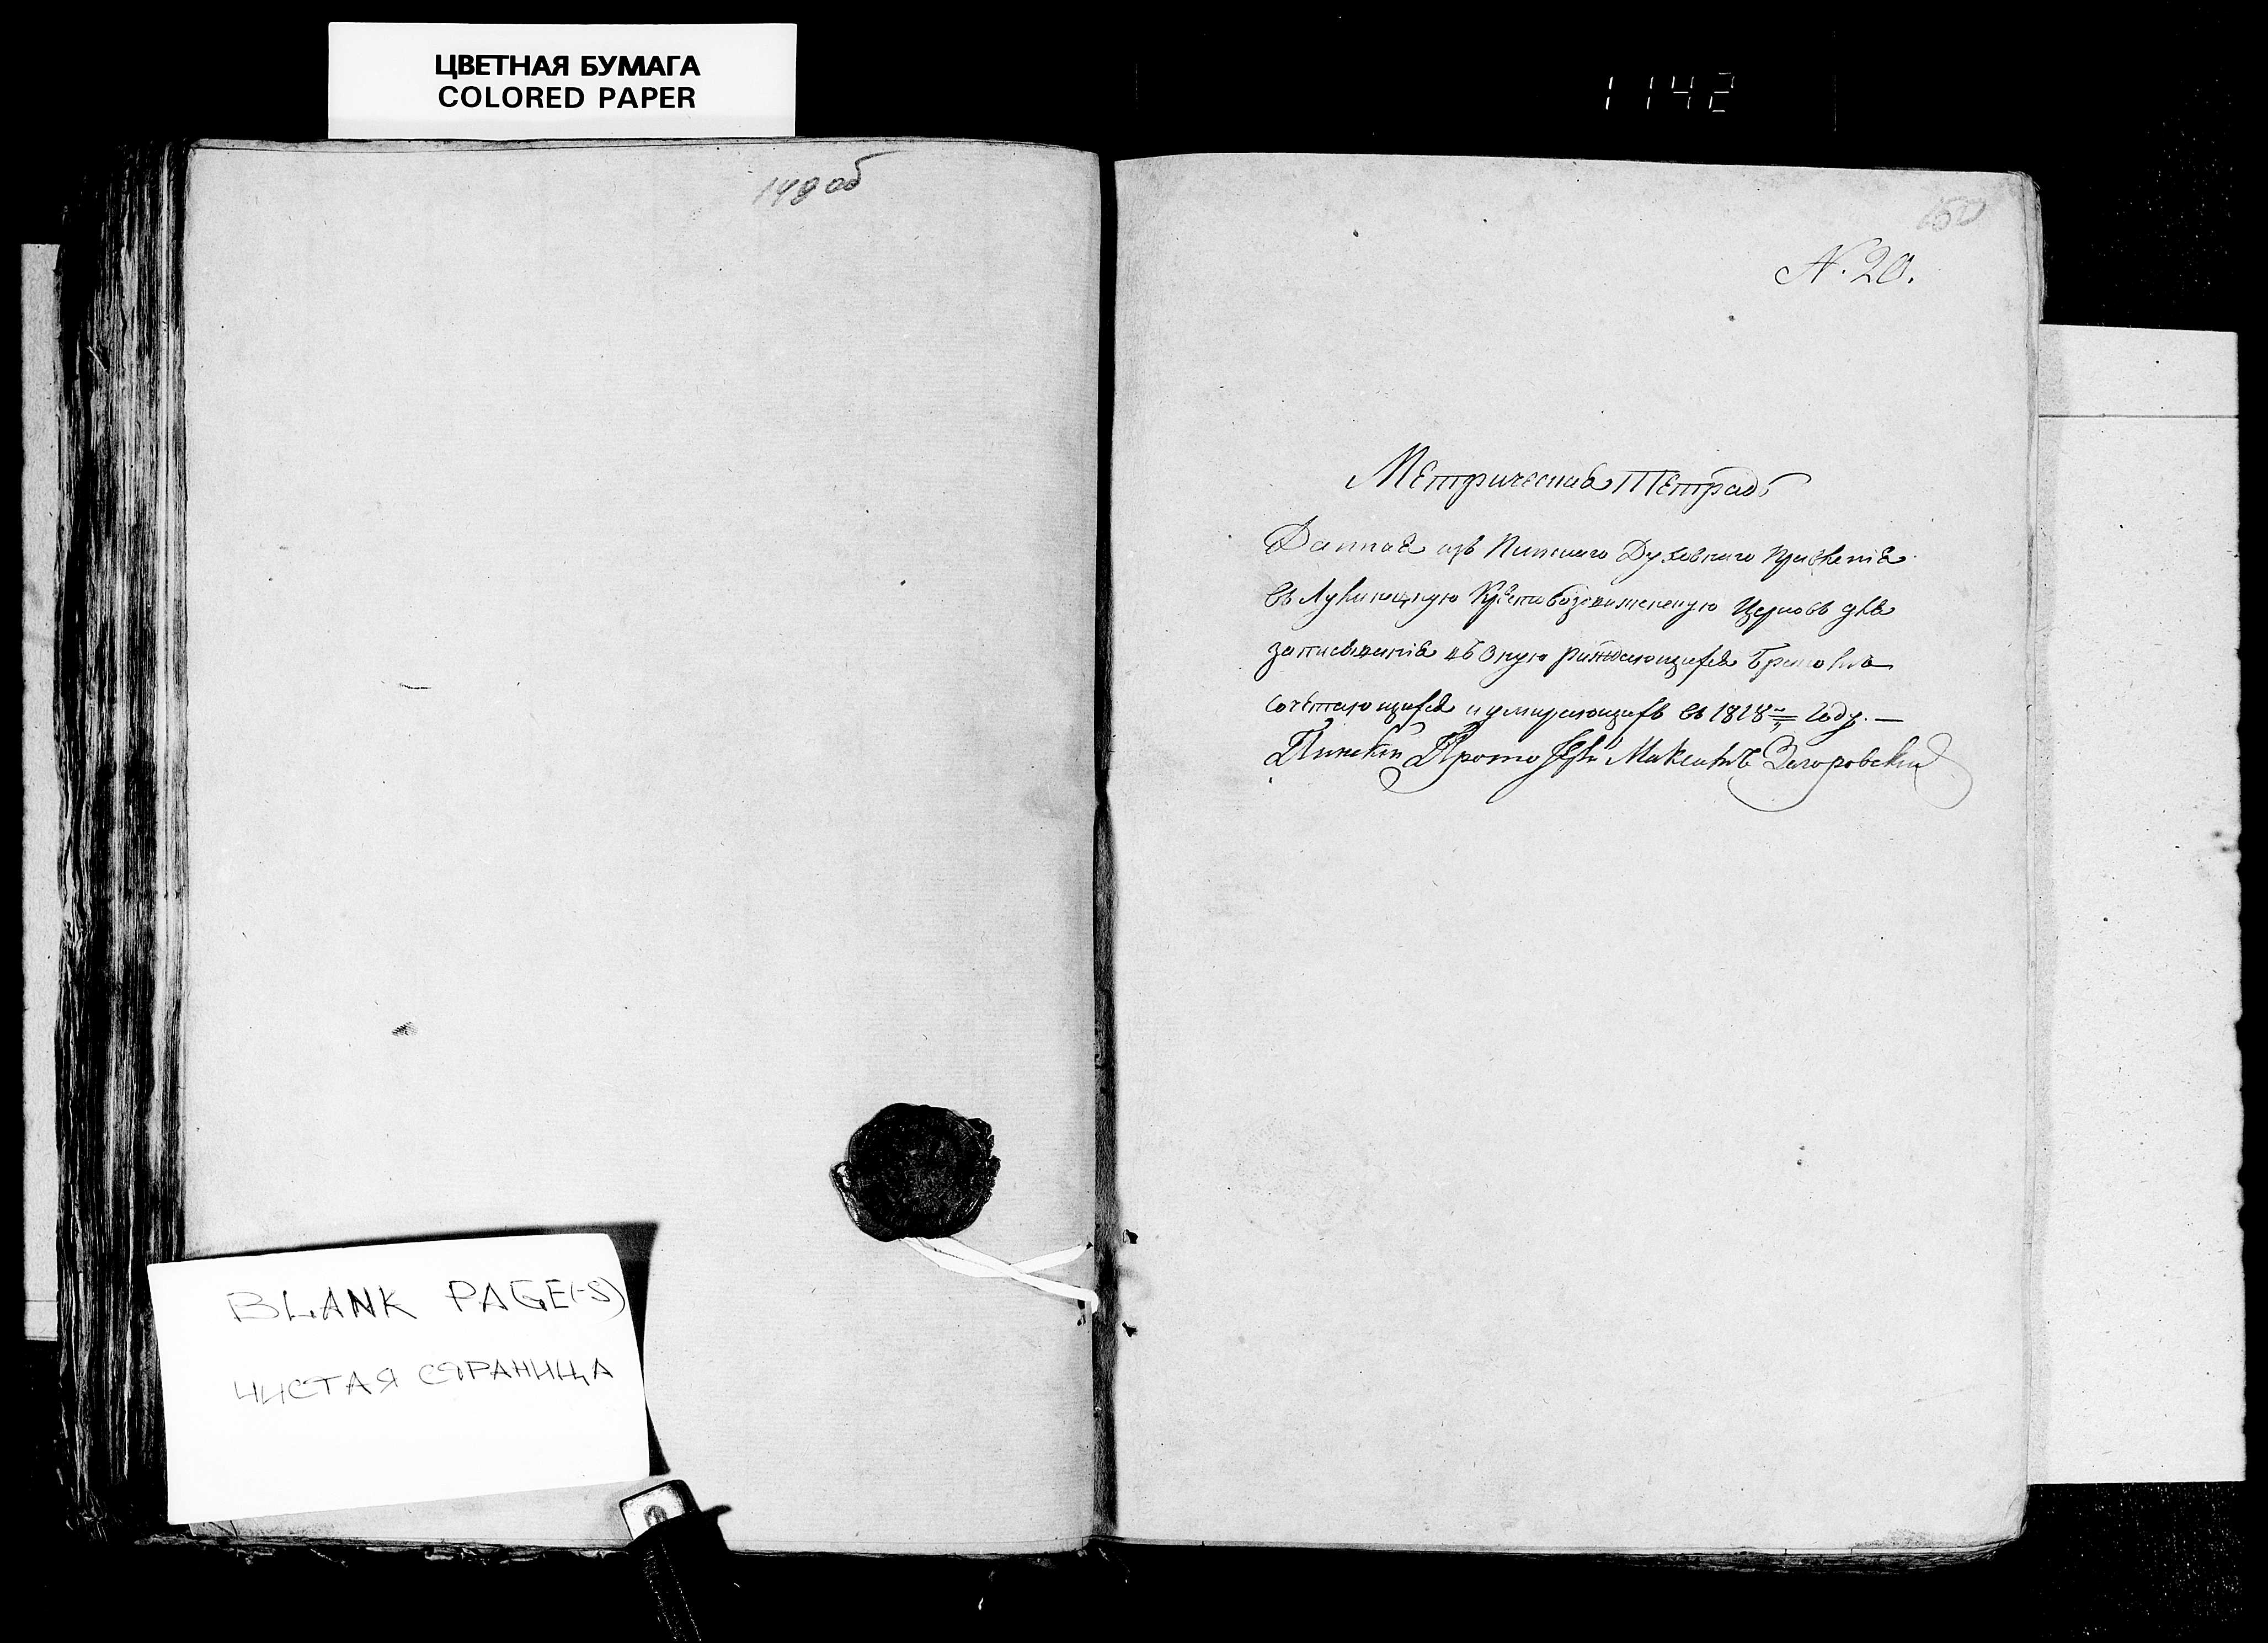 ЦВЕТНАЯ БУМАГА
COLORED PAPER
1142
149 об
150
N. 20.
Метрическая Тетрадь
Данная изъ Пинскаго Духовнаго Правленія
въ Лунинецкую Крестовоздвиженскую Церковь для
записыванія въ оную раждающихся Бракомъ
сочетающихся и умирающихъ въ 1828 году. —
Пинскій Протоіерей Загоровскій
BLANK PAGE(-S)
ЧИСТАЯ СТРАНИЦА